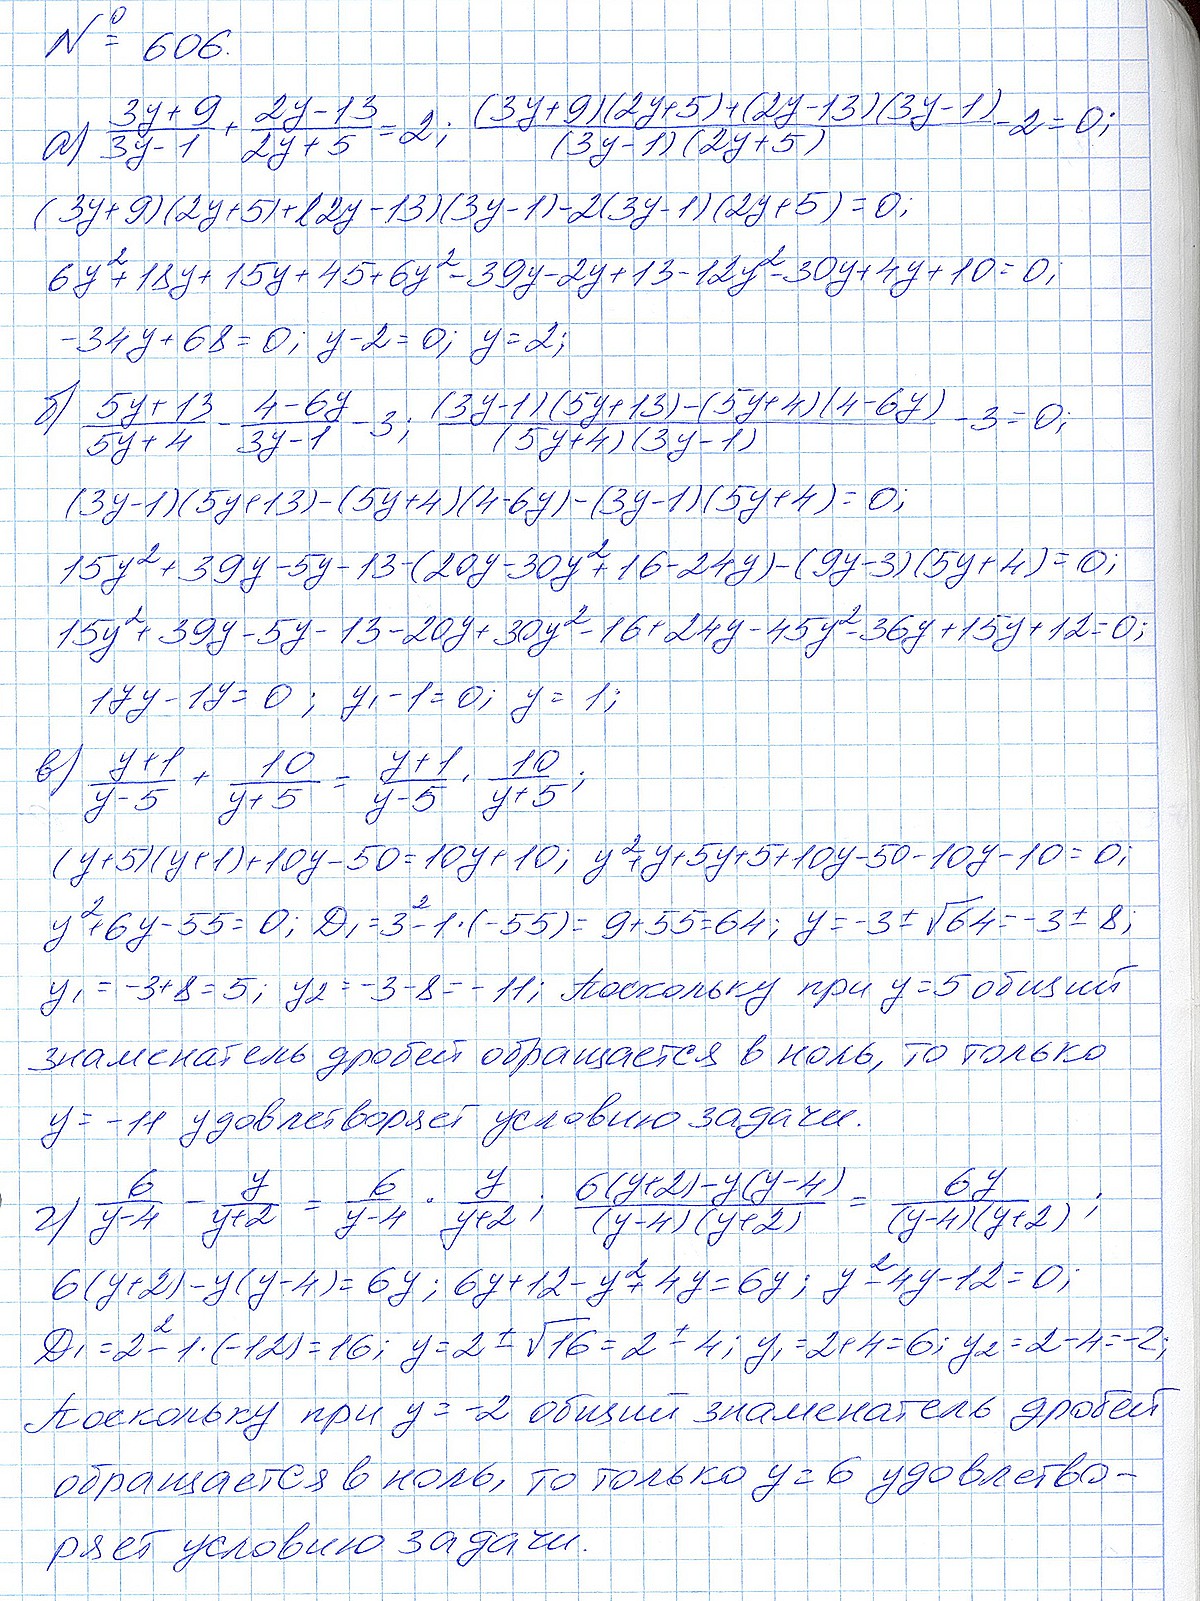 № 606.
а) (3y+9)/(3y-1) + (2y-13)/(2y+5) = 2; ((3y+9)(2y+5)+(2y-13)(3y-1))/((3y-1)(2y+5)) - 2 = 0;
(3y+9)(2y+5)+(2y-13)(3y-1)-2(3y-1)(2y+5)=0;
6y²+18y+15y+45+6y²-39y-2y+13-12y²-30y+4y+10=0;
-34y+68=0; y-2=0; y=2;
б) (5y+13)/(5y+4) - (4-6y)/(3y-1) - 3; ((3y-1)(5y+13)-(5y+4)(4-6y))/((5y+4)(3y-1)) - 3 = 0;
(3y-1)(5y+13)-(5y+4)(4-6y)-(3y-1)(5y+4)=0;
15y²+39y-5y-13-(20y-30y²+16-24y)-(9y-3)(5y+4)=0;
15y²+39y-5y-13-20y+30y²-16+24y-45y²-36y+15y+12=0;
17y-17=0; y₁-1=0; y=1;
в) (y+1)/(y-5) + 10/(y+5) = (y+1)/(y-5) · 10/(y+5);
(y+5)(y+1)+10y-50=10y+10; y²+y+5y+5+10y-50-10y-10=0;
y²+6y-55=0; D₁=3²-1·(-55)=9+55=64; y=-3±√64=-3±8;
y₁=-3+8=5; y₂=-3-8=-11; Поскольку при y=5 общий
знаменатель дробей обращается в ноль, то только
y=-11 удовлетворяет условию задачи.
г) 6/(y-4) - y/(y+2) = 6/(y-4) · y/(y+2); (6(y+2)-y(y-4))/((y-4)(y+2)) = 6y/((y-4)(y+2));
6(y+2)-y(y-4)=6y; 6y+12-y²+4y=6y; y²-4y-12=0;
D₁=2²-1·(-12)=16; y=2±√16=2±4; y₁=2+4=6; y₂=2-4=-2;
Поскольку при y=-2 общий знаменатель дробей
обращается в ноль, то только y=6 удовлетво-
ряет условию задачи.